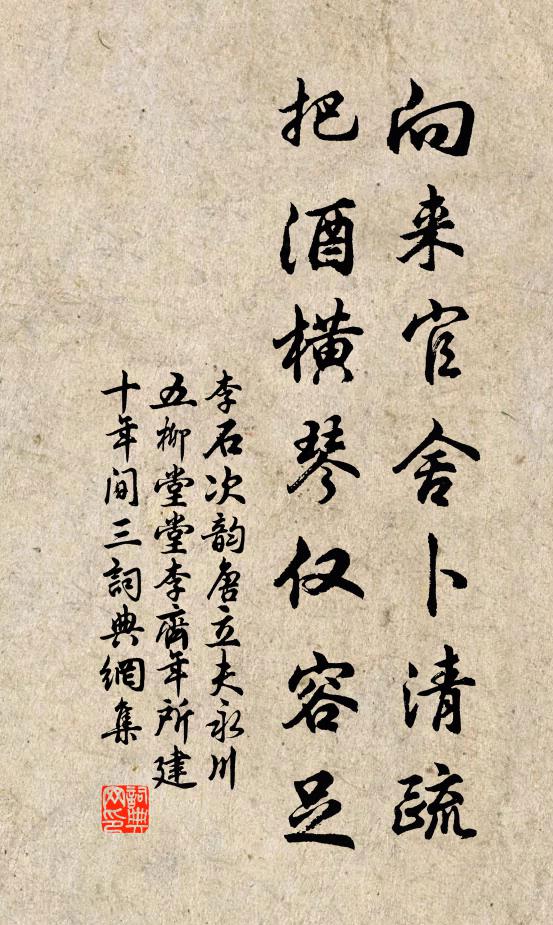 向来官舍卜清疏
把酒横琴仅容足
李石次韵唐立夫永川
五柳堂堂李齊年所建
十年间三詞典網集
詞典网印